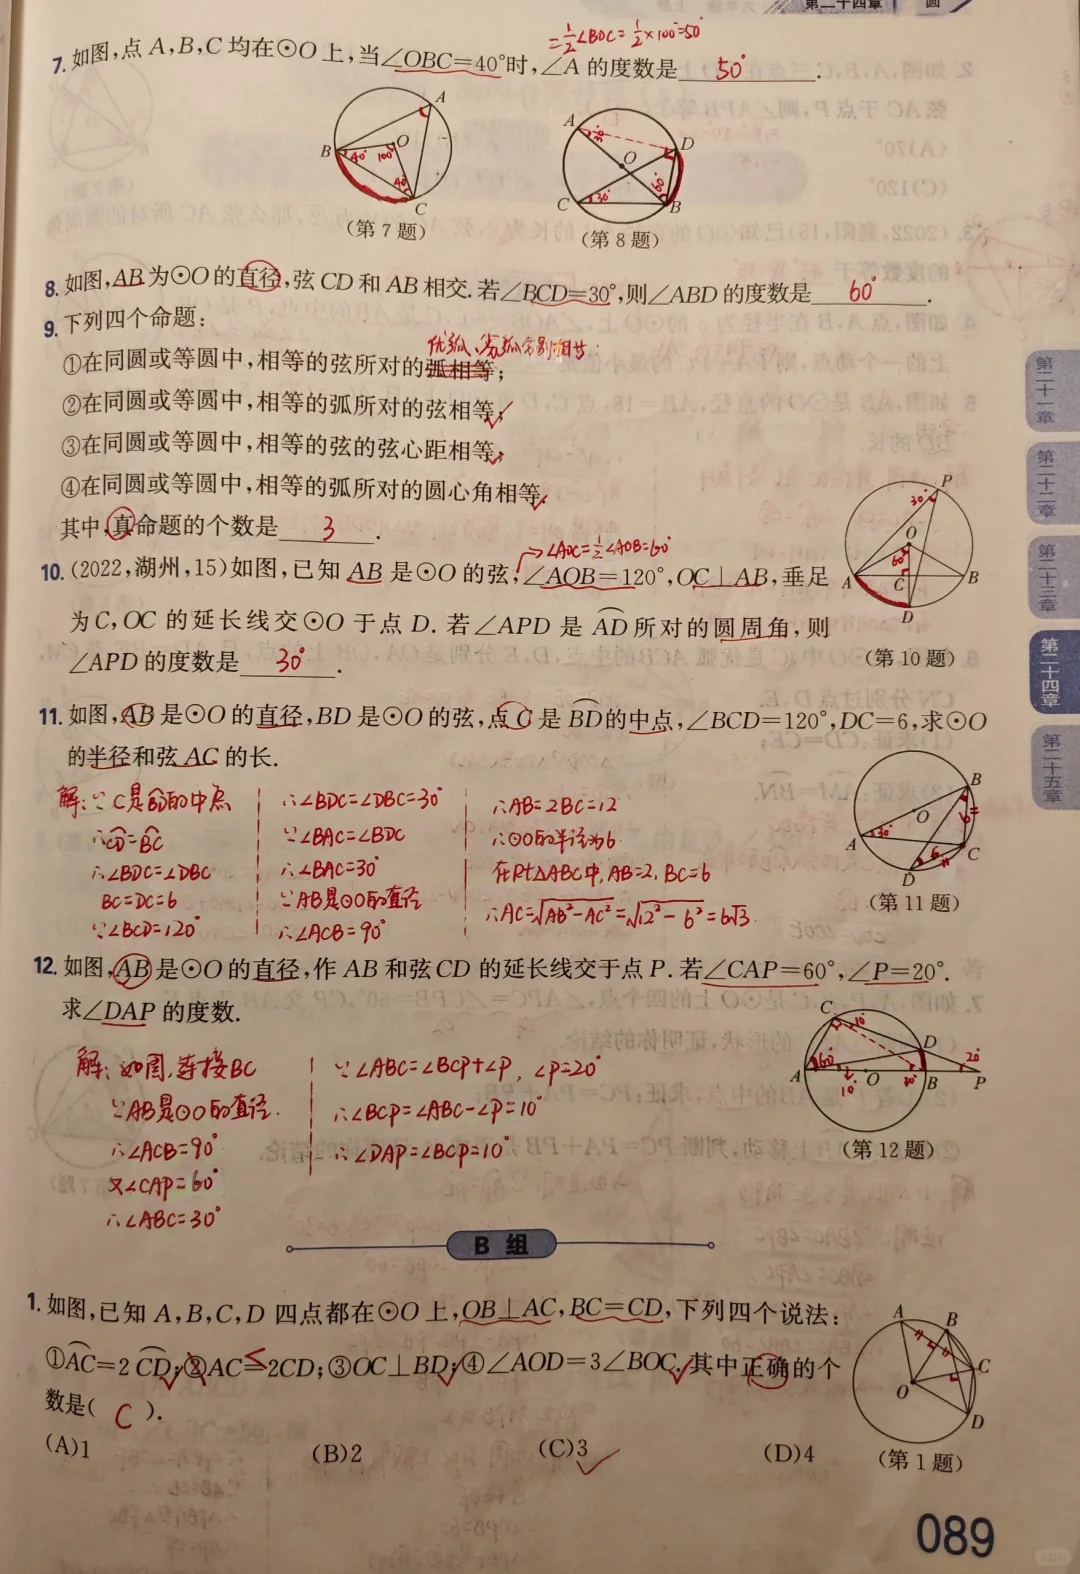 第二十四章 圆
=½∠BOC=½×100°=50°
7. 如图,点 A,B,C 均在⊙O 上,当∠OBC=40°时,∠A 的度数是 50° .
A
B
O
C
40°
100°
40°
(第 7 题)
A
D
O
C
B
30°
30°
(第 8 题)
8. 如图,AB 为⊙O 的直径,弦 CD 和 AB 相交. 若∠BCD=30°,则∠ABD 的度数是 60° .
9. 下列四个命题:
优弧、劣弧分别相等
①在同圆或等圆中,相等的弦所对的弧相等;
②在同圆或等圆中,相等的弧所对的弦相等;✓
③在同圆或等圆中,相等的弦的弦心距相等;✓
④在同圆或等圆中,相等的弧所对的圆心角相等.✓
其中,真命题的个数是 3 .
→∠AOC=½∠AOB=60°
10. (2022,湖州,15)如图,已知 AB 是⊙O 的弦,∠AOB=120°,OC⊥AB,垂足
为 C,OC 的延长线交⊙O 于点 D. 若∠APD 是 AD 所对的圆周角,则
∠APD 的度数是 30° .
P
30°
O
60°
A
C
B
D
(第 10 题)
11. 如图,AB 是⊙O 的直径,BD 是⊙O 的弦,点 C 是 BD 的中点,∠BCD=120°,DC=6,求⊙O
的半径和弦 AC 的长.
解:∵C是BD的中点
∴CD=BC
∴∠BDC=∠DBC
BC=DC=6
∵∠BCD=120°
∴∠BDC=∠DBC=30°
∵∠BAC=∠BDC
∴∠BAC=30°
∵AB是⊙O的直径
∴∠ACB=90°
∴AB=2BC=12
∴⊙O的半径为6
在Rt△ABC中,AB=2,BC=6
∴AC=√AB²-AC²=√12²-6²=6√3
B
O
A
30°
C
D
6
6
(第 11 题)
12. 如图,AB 是⊙O 的直径,作 AB 和弦 CD 的延长线交于点 P. 若∠CAP=60°,∠P=20°.
求∠DAP 的度数.
解:如图,连接BC
∵AB是⊙O的直径.
∴∠ACB=90°
又∠CAP=60°
∴∠ABC=30°
∵∠ABC=∠BCP+∠P, ∠P=20°
∴∠BCP=∠ABC-∠P=10°
∴∠DAP=∠BCP=10°
C
10°
D
60°
20°
A
O
B
P
10°
30°
(第 12 题)
B 组
1. 如图,已知 A,B,C,D 四点都在⊙O 上,OB⊥AC,BC=CD,下列四个说法:
①AC=2 CD;✓②AC=2CD;③OC⊥BD;✓④∠AOD=3∠BOC.✓其中正确的个
<
数是( C ).
(A)1 (B)2 (C)3 ✓ (D)4
A
B
C
O
D
(第 1 题)
第二十一章
第二十二章
第二十三章
第二十四章
第二十五章
089